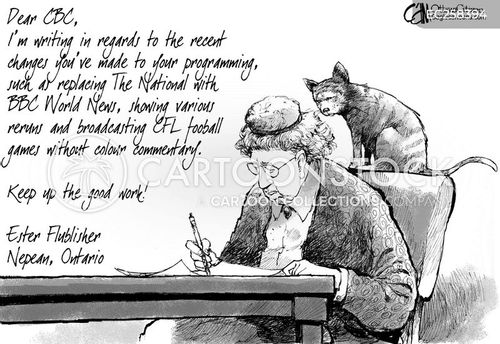 EC258394
Dear CBC,
I'm writing in regards to the recent
changes you've made to your programming,
such as replacing The National with
BBC World News, showing various
reruns and broadcasting CFL fooball
games without colour commentary.
Keep up the good work!
Ester Flublisher
Nepean, Ontario
CARTOONSTOCK
CARTOONCOLLECTIONS COMPANY